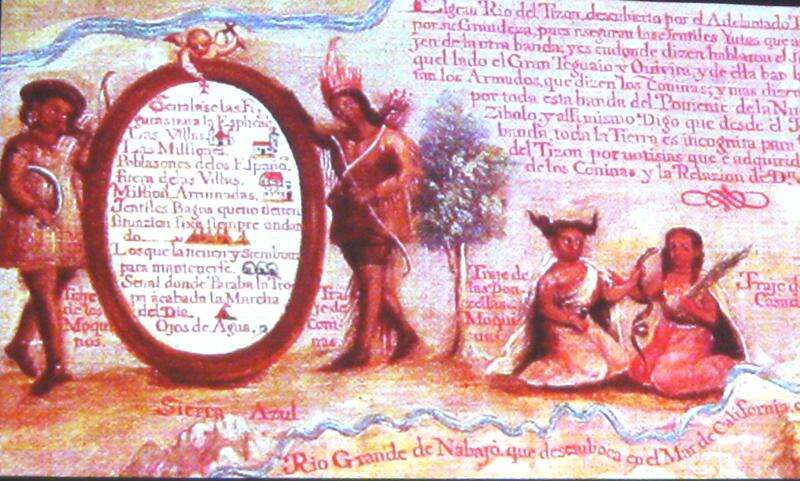 El gran Rio del Tizon, descubierto por el Adelantado
por su Grandeza, pues aseguran los Jentiles Yutas que
jen de la otra banda, y es en donde dizen hablarua el
quel lado el Gran Teguaio y Quivira, y de esta
los Armudos, que dizen los Coninas, y mas
por toda esta banda del Pomenie de la
Zibolo, y assimismo Digo que desde el
banda, toda la Tierra es incognita para
del Tizon por notisias que e adquirid
de los Coninas y la Relazion de
Señalase las Fi
guras para la Esplica
Las Villas
Las Missiones
Poblasones de los Españo
fuera de las Villas.
Missions Arruinadas.
Jentiles Bagos que no tienen
situazion fixa siempre andan
do
Los que la tienen y siembran
para mantenerse.
Señal donde Paraba la Tro
pa acabada la Marcha
del Dia.
Ojos de Agua.
Traje
de los
Moqui
nos.
Tra
je de
Coni
nas
Traje de
las Don
cellas
Moqui
nas
Traje d
Casad
Sierra Azul
Rio Grande de Nabajò, que desemboca en el Mar de California